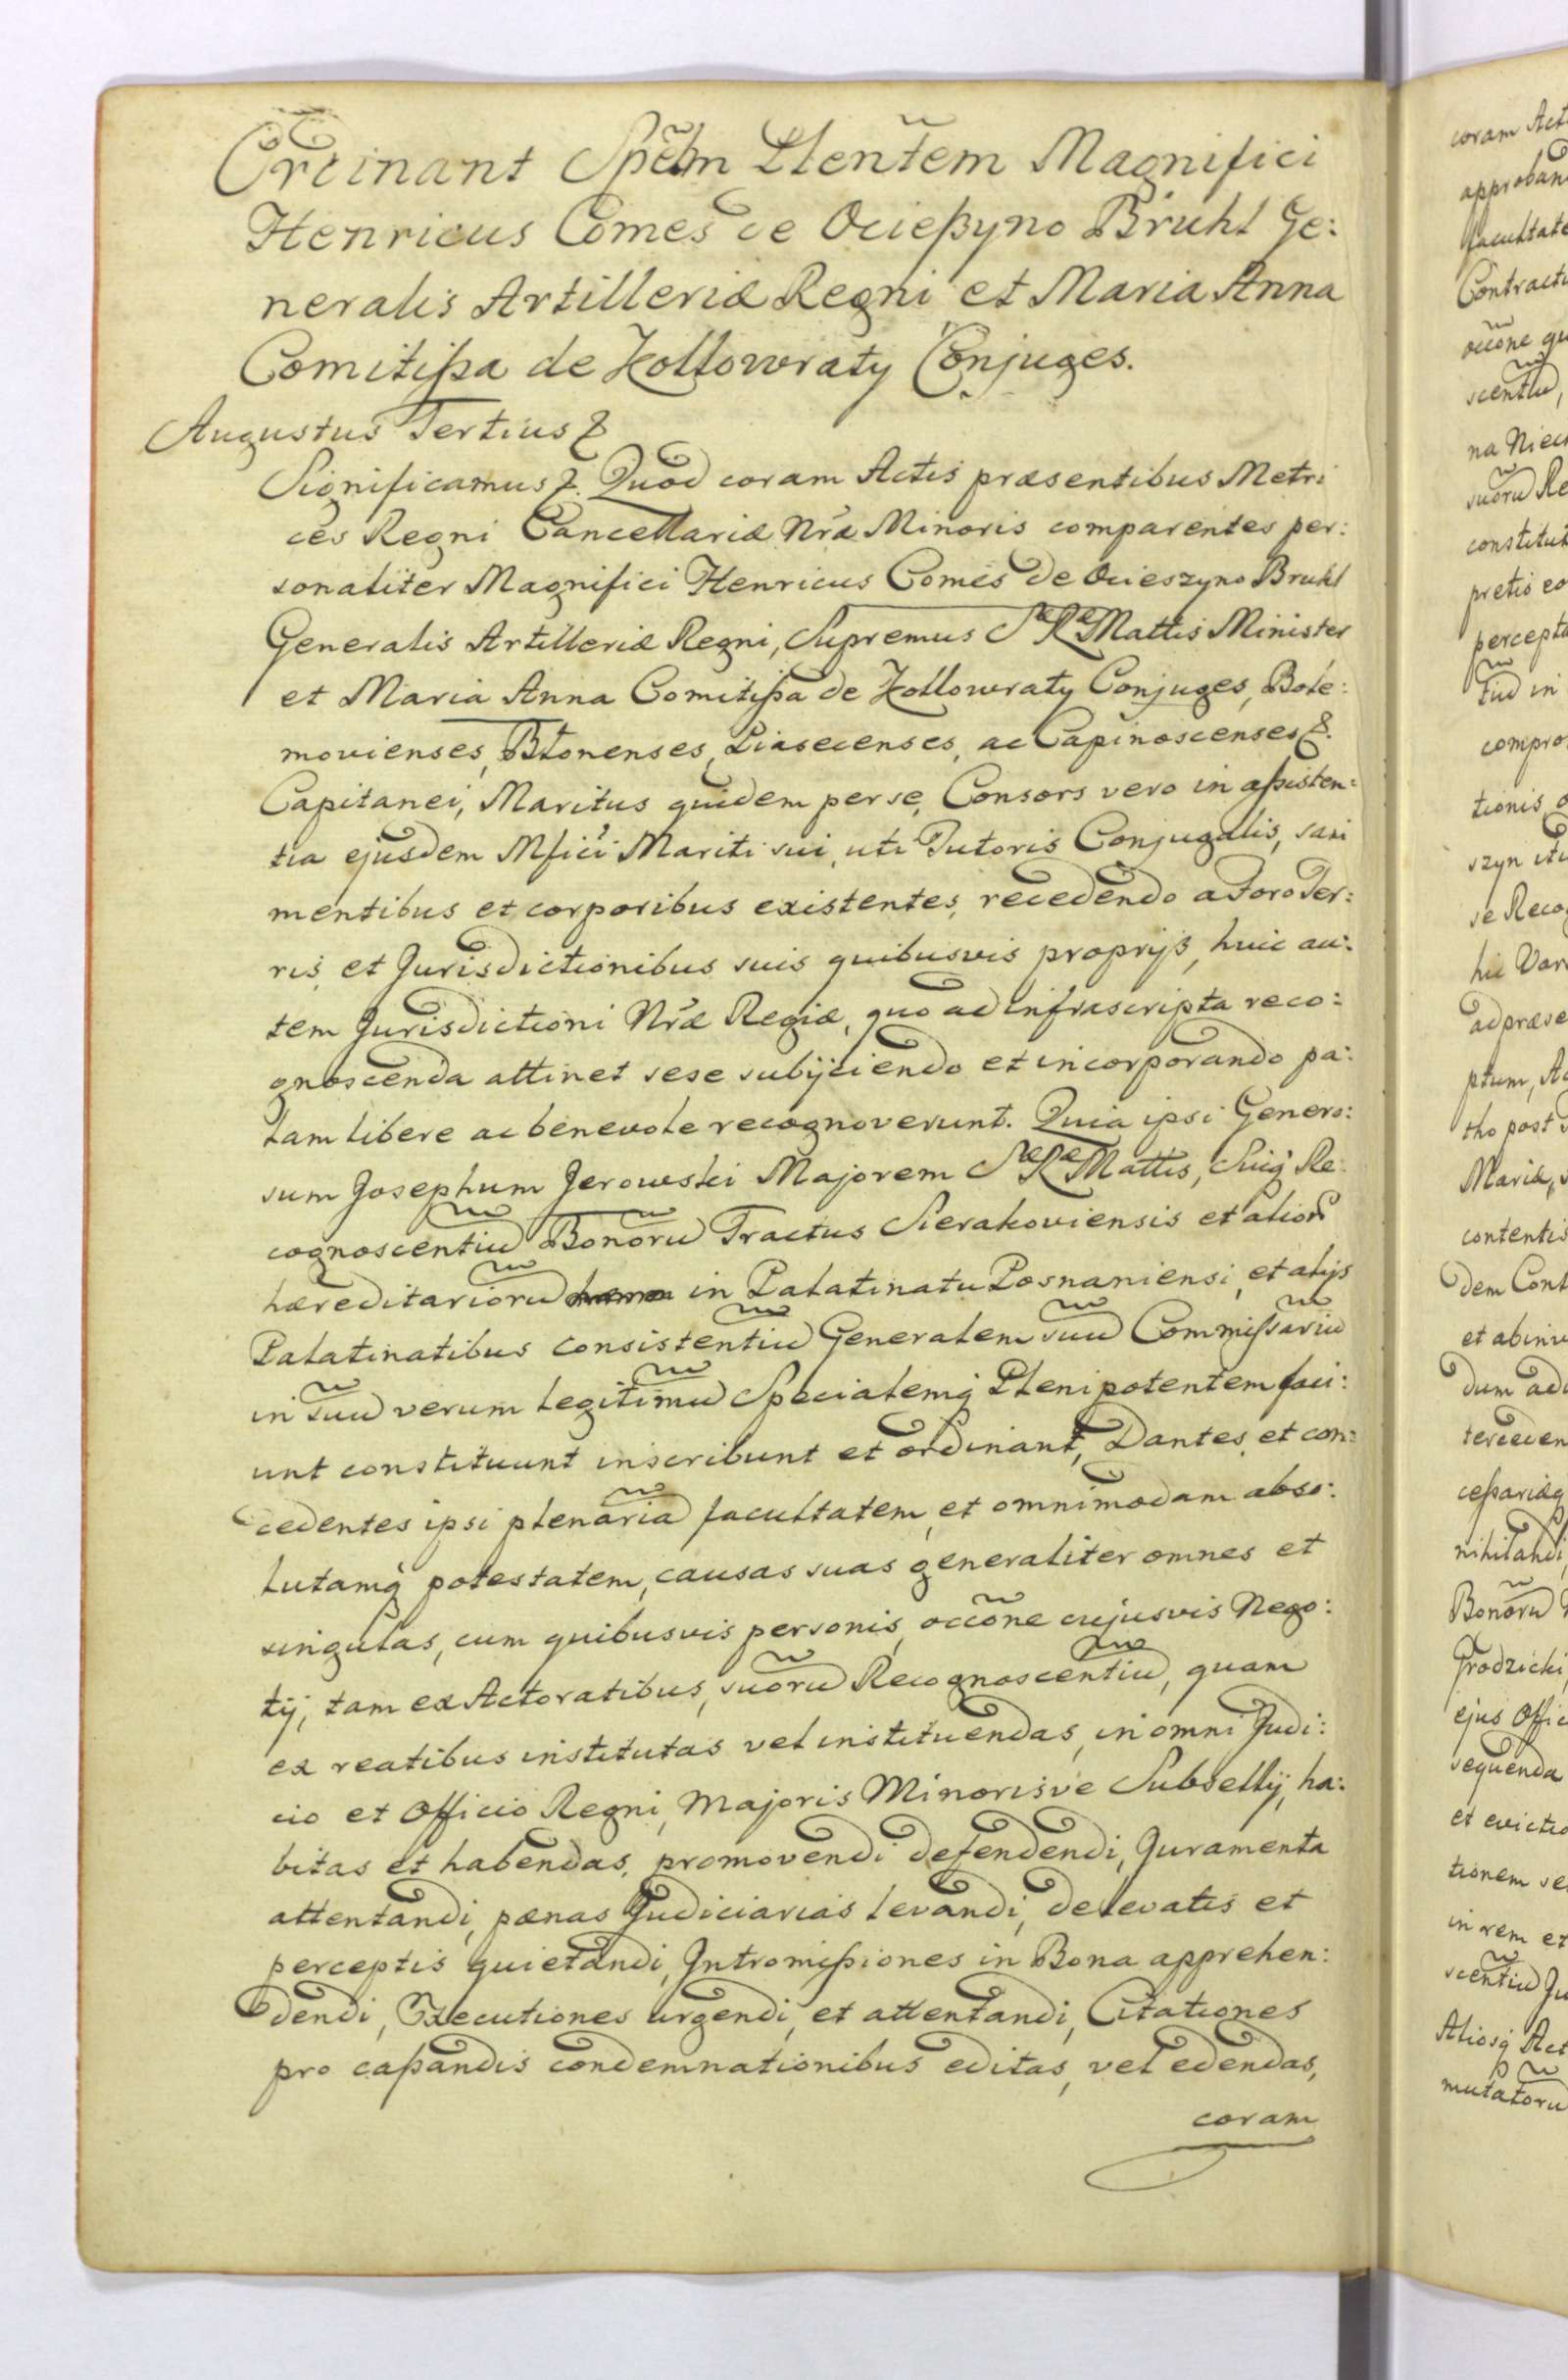 Ordinant Spēlm Pleñtem Magnifici
Henricus Comes de Ocießyno Bruhl Ge:
neralis Artilleriæ Regni et Maria Anna
Comitißa de Kollowraty Conjuges.
Augustus Tertius &
Significamus &. Quod coram Actis præsentibus Metri
ces Regni Cancellariæ Nræ Minoris comparentes per:
sonaliter Magnifici Henricus Comes de Ocieszyno Bruhl
Generalis Artilleriæ Regni, Supremus SæRæMattis Minister
et Maria Anna Comitißa de Kollowraty Conjuges, Bole:
movienses, Błonenses, Piasecenses, ac Capinoscenses &.
Capitanei, Maritus quidem per se, Consors vero in aßisten:
tia ejusdem Mfici Mariti sui, uti Tutoris Conjugalis, sani
mentibus et corporibus existentes, recedendo a Foro Ter:
ris, et Jurisdictionibus suis quibusvis proprijs, huic au:
tem Jurisdictioni Nræ Regiæ, quo ad infrascripta reco:
gnoscenda attinet sese subijciendo et incorporando pa:
lam libere ac benevole recognoverunt. Quia ipsi Genero:
sum Josephum Jerowski Majorem SæRæMattis, Suiq̃ Re:
cognoscentiũ Bonorũ Tractus Sierakoviensis et alior̃
hæreditariorũ in Palatinatu Posnaniensi, et alijs
Palatinatibus consistentiũ Generalem suũ Commißariũ
in suũ verum legitimũ Specialemq̃ Plenipotentem faci:
unt constituunt inscribunt et ordinant, Dantes et con:
cedentes ipsi plenariã facultatem, et omnimodam abso:
lutamq̃ potestatem, causas suas generaliter omnes et
singulas, cum quibusvis personis, occõne cujusvis Nego:
tij, tam ex Actoratibus, suorũ Recognoscentiũ, quam
ex reatibus institutas vel instituendas, in omni Judi:
cio et Officio Regni, Majoris Minorisve Subsellij, ha:
bitas et habendas, promovendi defendendi, Juramenta
attentandi, pænas Judiciarias levandi, de levatis et
perceptis quietandi, Intromißiones in Bona apprehen:
dendi, Executiones urgendi, et attentandi, Citationes
pro caßandis condemnationibus editas, vel edendas,
coram
coram Act
approban
facultate
Contractu
occõne qu
scentiũ,
suorũ Re
constitut
pretio eo
percepta
tiũ in
compro
tionis
szyn
se Reco
hic Var
ad præse
ptum, A
tho post
Mariæ,
contentis
dem Cont
dum ad
ceßariæq
Bonorũ
Grodzicki,
ejus Offic
sequenda
et evictio
tionem se
in rem et
scentiũ Ju
Aliosq̃ Act
mutatorũ